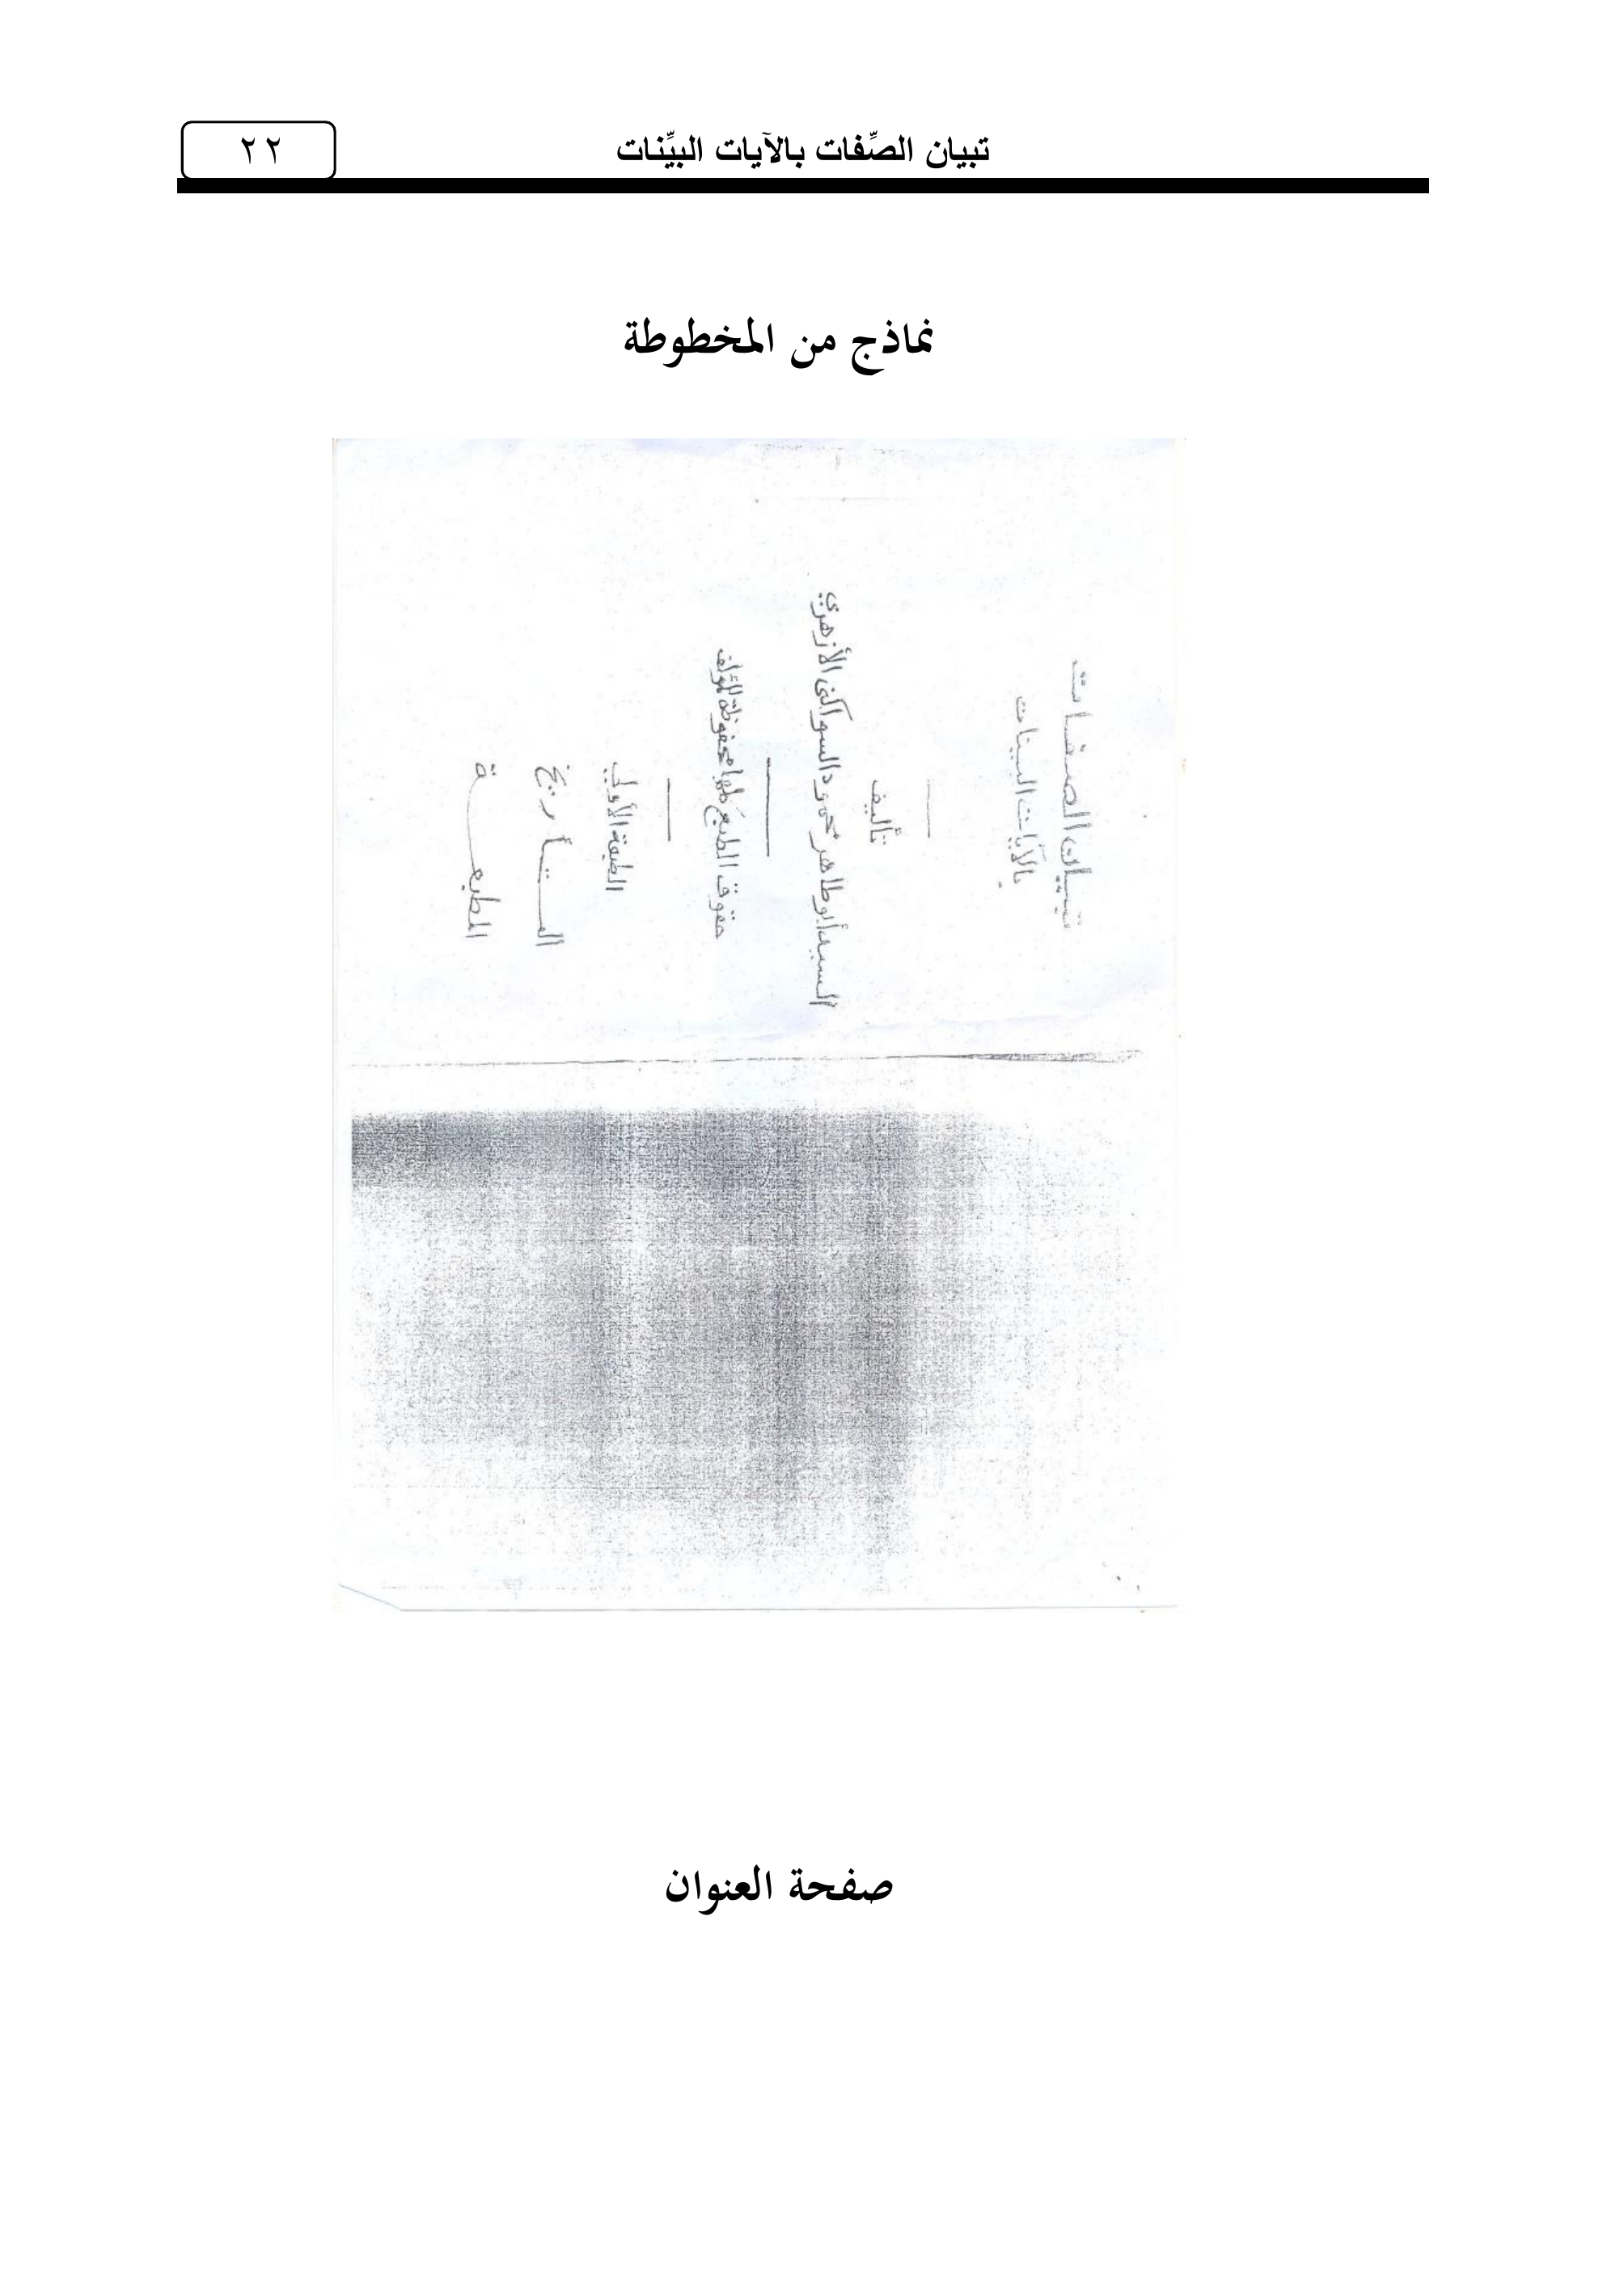 تبيان الصِّفات بالآيات البيِّنات
٢٢
نماذج من المخطوطة
تبيان الصفات
بالآيات البينات
تأليف
السيد أبو طاهر محمود السواكنى الأزهري
حقوق الطبع كلها محفوظة للمؤلف
الطبعة الأولى
التاريخ
المطبعة
صفحة العنوان